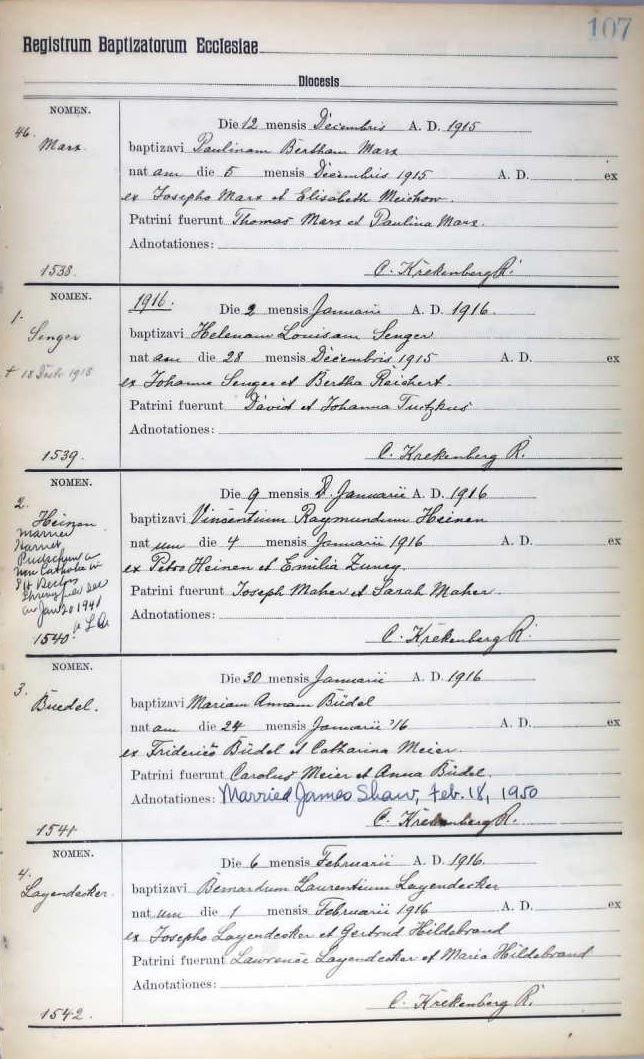 107
Registrum Baptizatorum Ecclesiae
Diocesis
NOMEN.
46.
Marx.
1538.
Die 12 mensis Decembris A. D. 1915
baptizavi Paulinam Bertham Marx
nat am die 5 mensis Decembris 1915 A. D. ex
ex Josepho Marx et Elisabeth Meichow.
Patrini fuerunt Thomas Marx et Paulina Marx.
Adnotationes:
C. Krekenberg R.
NOMEN.
1.
Senger
† 18 1918
1539.
1916.
Die 2 mensis Januarii A. D. 1916.
baptizavi Helenam Louisam Senger
nat am die 28 mensis Decembris 1915 A. D. ex
ex Johanne Senger et Bertha Reichert.
Patrini fuerunt David et Johanna Tutzkus
Adnotationes:
C. Krekenberg R.
NOMEN.
2.
Heinen
married
Harriet
a
non Catholic in
Springfield
on Jan 20 1941
1540.
Die 9 mensis Januarii A. D. 1916
baptizavi Vincentium Raymundum Heinen
nat um die 4 mensis Januarii 1916 A. D. ex
ex Petro Heinen et Emilia
Patrini fuerunt Joseph Maher et Sarah Maher.
Adnotationes:
C. Krekenberg R.
NOMEN.
3.
Buedel.
1541.
Die 30 mensis Januarii A. D. 1916
baptizavi Mariam Annam Büdel
nat am die 24 mensis Januarii '16 A. D. ex
ex Friderico Büdel et Catharina Meier.
Patrini fuerunt Carolus Meier et Anna Büdel.
Adnotationes: Married James Shaw, Feb. 18, 1950
C. Krekenberg R.
NOMEN.
4.
Layendecker.
1542.
Die 6 mensis Februarii A. D. 1916.
baptizavi Bernardum Laurentium Layendecker
nat um die 1 mensis Februarii 1916 A. D. ex
ex Josepho Layendecker et Gertrud Hildebrand
Patrini fuerunt Lawrence Layendecker et Maria Hildebrand
Adnotationes:
C. Krekenberg R.